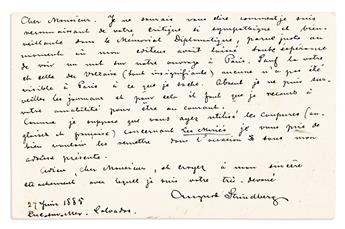 Cher Monsieur. Je ne saurais vous dire combien je suis
reconnaissant de votre critique si sympathique et bien-
veillante dans le Mémorial Diplomatique, parue juste au
moment où mon éditeur avait laissé toute espérance
de voir un mot sur notre ouvrage à Paris. Sauf la votre
et celle de (tout insignifiante) aucune n'a pas été
visible à Paris à ce que je sache. Absent je ne puis sur-
veiller les journaux et pour cela il faut que je recours à
votre amabilité pour être au courant.
Comme je suppose que vous ayez utilisé les coupures (an-
glaises et françaises) concernant Les Mariés je vous prie de
bien vouloir les remettre dans l'occasion sous mon
adresse présente.
Adieu, cher Monsieur, et croyez à mon sincère
attachement avec lequel je suis votre très-dévoué
August Strindberg
27 Juin 1885
Luc-sur-Mer. Calvados.